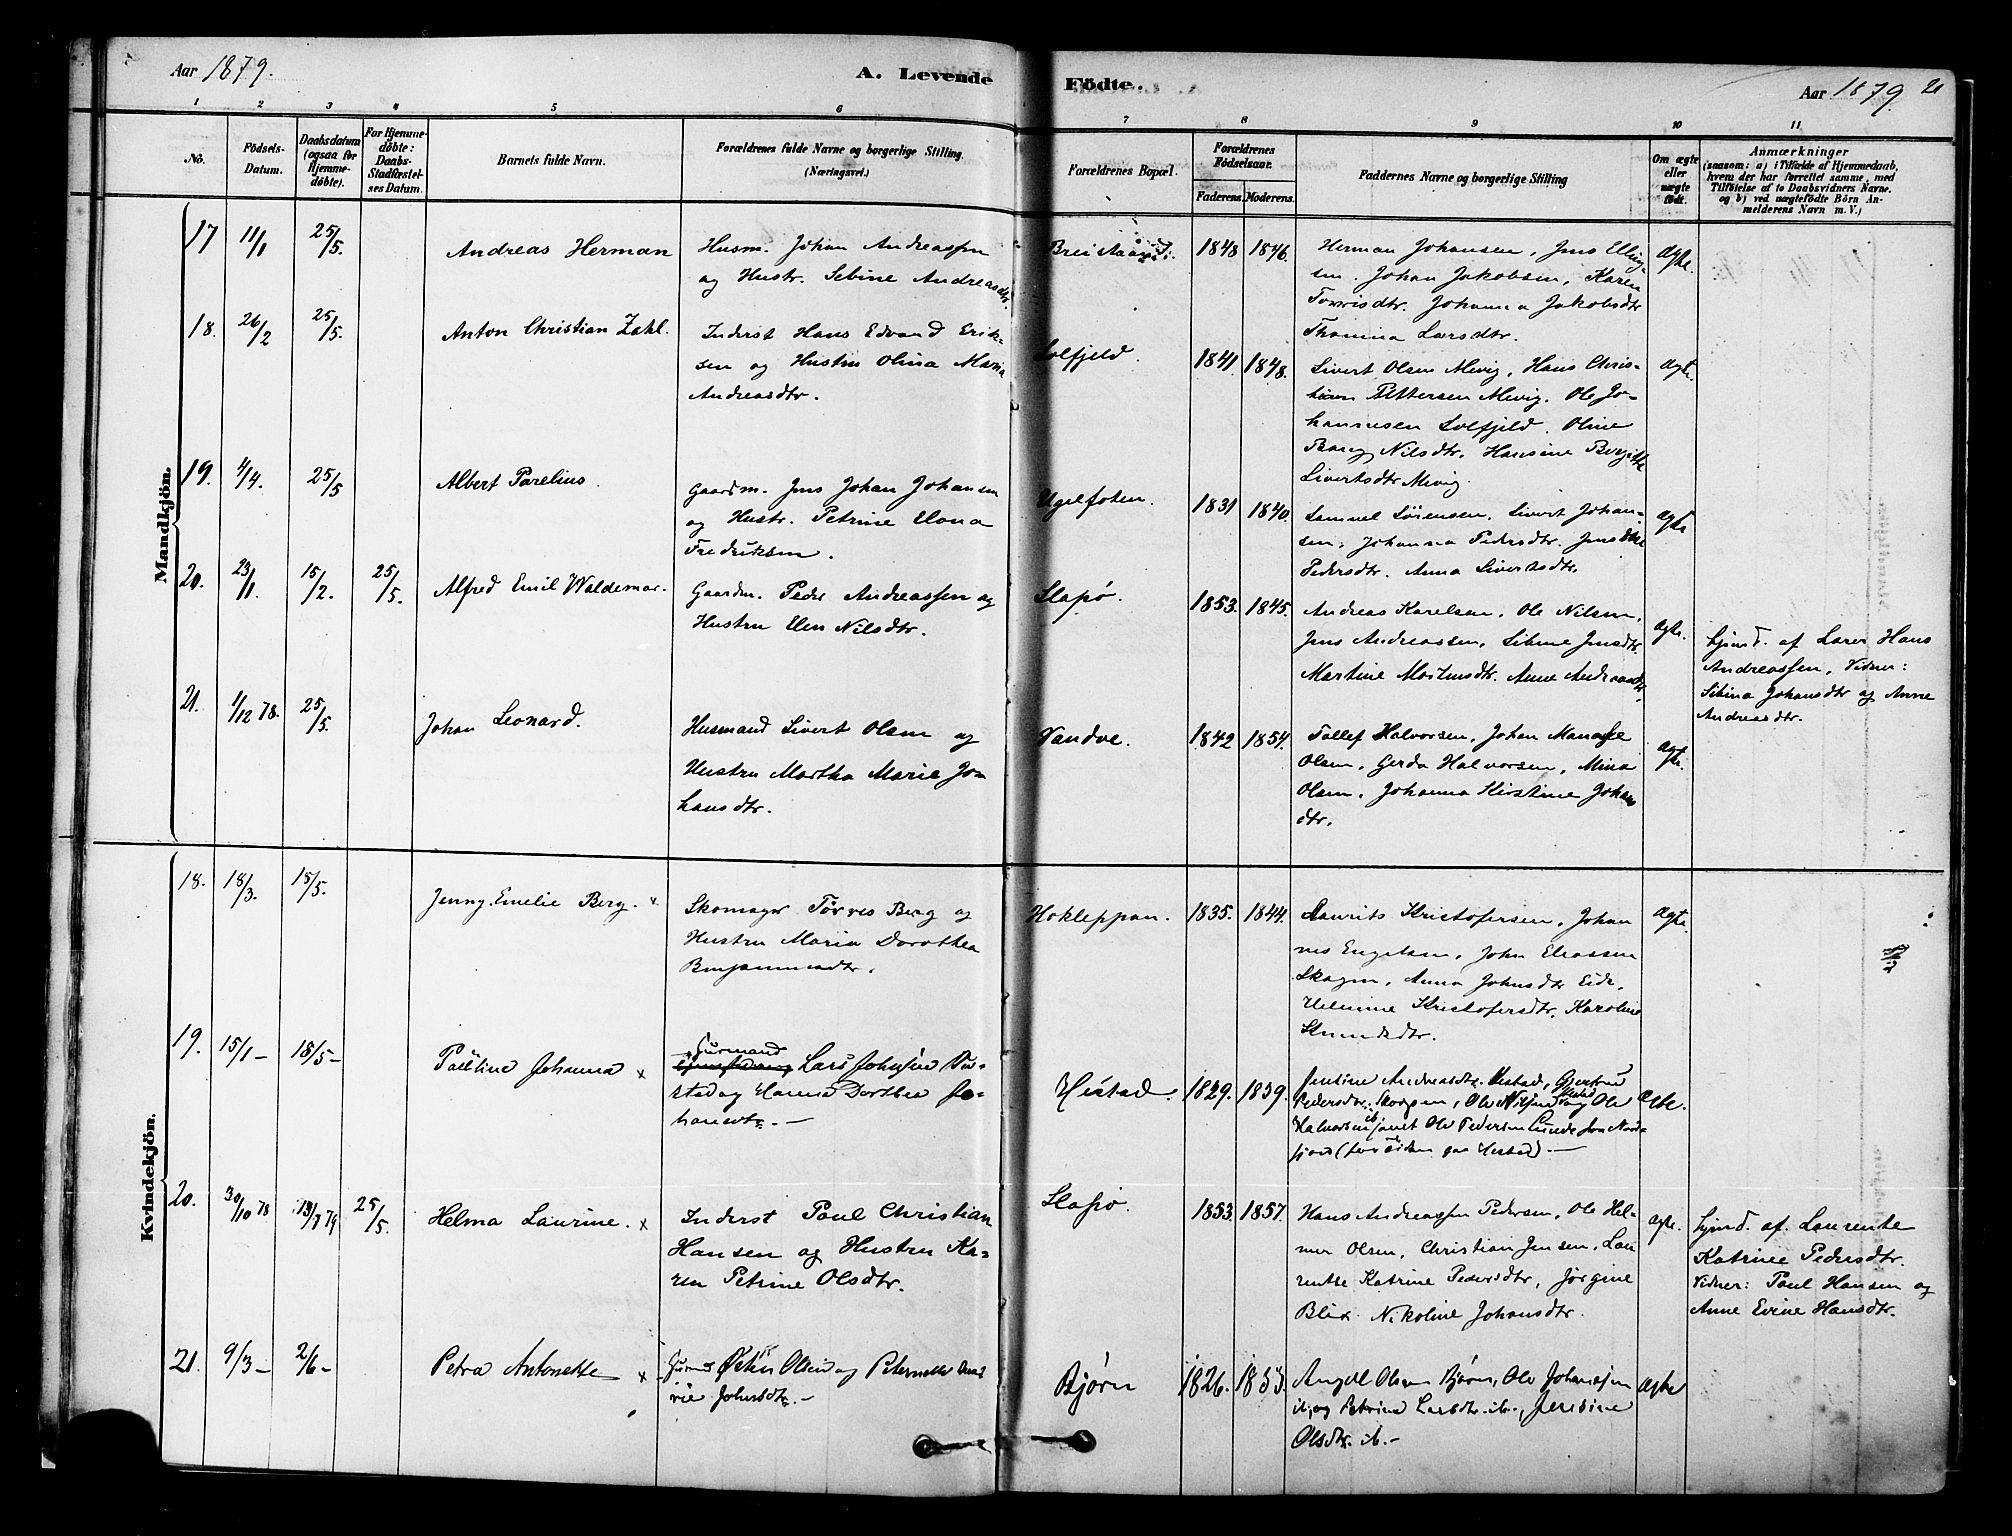 Aar 1879.
A. Levende
Födte.
Aar 1879.
21
1 2 3 4 5 6 7 8 9 10 11
No.
Födsels-
Datum.
Daabsdatum
(ogsaa for
Hjemme-
döbte).
For Hjemme-
döbte:
Daabs-
Stadfæstel-
ses Datum.
Barnets fulde Navn.
Forældrenes fulde Navne og borgerlige Stilling
(Næringsvei.)
Forældrenes Bopæl.
Forældrenes
Födselsaar.
Faderens.
Moderens.
Faddernes Navne og borgerlige Stilling
Om ægte
eller
uægte
födt.
Anmærkninger
(saasom: a) i Tilfælde af Hjemmedaab,
hvem der har forrettet samme, med
Tilföielse af to Daabsvidners Navne.
og b) ved uægtefödte Börn An-
melderens Navn m. V.)
Mandkjön.
17 11/1 25/5.
Andreas Herman
Husm. Johan Andreassen
og Hustr. Sebine Andreasdtr.
1848 1846.
Herman Johansen, Jens Elling-
sen. Johan Jakobsen, Karen
Torrisdtr. Johanna Jakobsdtr
Thomina Larsdtr.
ægte.
18. 26/2 25/5.
Anton Christian Zahl.
Inderst Hans Edvard Erik-
sen og Hustru Olina Maria
Andreasdtr.
Solfjeld.
1841. 1848.
Sivert Olsen Mevig, Hans Chris-
tian Pettersen Mevig. Ole Jo-
hannesen Solfjeld. Oline
Nilsdtr. Hansine Bergitte
Sivertsdtr Mevig.
ægte.
19. 4/4. 25/5
Albert Parelius.
Gaardm. Jens Johan Johansen
og Hustr. Petrine Elona
Fredriksen.
Ugelfoten.
1831 1840.
Samuel Sörensen, Sivert Johan-
sen, Johanna Pedersdtr.
Pedersdtr. Anna Sivertsdtr.
ægte
20. 23/1. 15/2. 25/5.
Alfred Emil Waldemar.
Gaardm. Peder Andreassen og
Hustru Elen Nilsdtr.
Slapø.
1853. 1845.
Andreas Karelsen, Ole Nilsen,
Jens Andreassen, Sibine Jensdtr.
Martine Mortensdtr. Anne Andreasdtr.
ægte.
Hjemd. af Lærer Hans
Andreassen, Vidner:
Sibina Johansdtr og Anne
Andreasdtr.
21. 1/12 78. 25/5.
Johan Leonard.
Husmand Sivert Olsen og
Hustru Martha Marie Jo-
hansdtr.
Vandve.
1842 1854.
Tollef Halvorsen, Johan Manasse
Olsen, Gerda Halvorsen, Mina
Olsen, Johanna Kirstine Johans
dtr.
ægte.
Kvindekjön.
18. 18/3. 15/5.
Jenny Emelie Berg. x
Skomager Törres Berg og
Hustru Maria Dorothea
Benjaminsdtr.
Hokleppan.
1835. 1844.
Laurits Kristofersen, Johan
nes Engelsen, John Eliassen
Skagen, Anna Johnsdtr Eide,
Helmine Kristofersdtr. Karoline
ægte.
19. 15/1- 18/5-
Pauline Johanna x
Gurmand
Lars Johnsen
og Hanna Dorthea Jo-
hansdtr. -
Hestad.
1829. 1839.
Jensine Andreasdtr. Hestad,
Pedersdtr. Skogen, Ole Nilsen Hestad og Ole
Halvorsen ib, samt Ole Pedersen
ægte.
20. 30/10 78 13/7 79 25/5.
Helma Laurine. x
Inderst Paul Christian
Hansen og Hustru Ka-
ren Petrine Olsdtr.
Slapø
1853. 1857.
Hans Andreassen Pedersen, Ole Hel-
mer Olsen, Christian Jensen, Lau
rentse Katrine Pedersdtr, Jörgine
Blix Nikoline Johansdtr.
ægte.
Hjemd. af. Laurentse
Katrine Pedersdtr.
Vidner: Paul Hansen og
Anne Evine Hansdtr.
21. 9/3- 2/6-
Petra Antonette x
Olsen og Peternelle
Johnsdtr. -
Bjørn
1826. 1833.
Angel Olsen Bjørn, Ole Johansen
ib, og Petrine Larsdtr. ib., Jensine
Olsdtr. ib. -
ægte